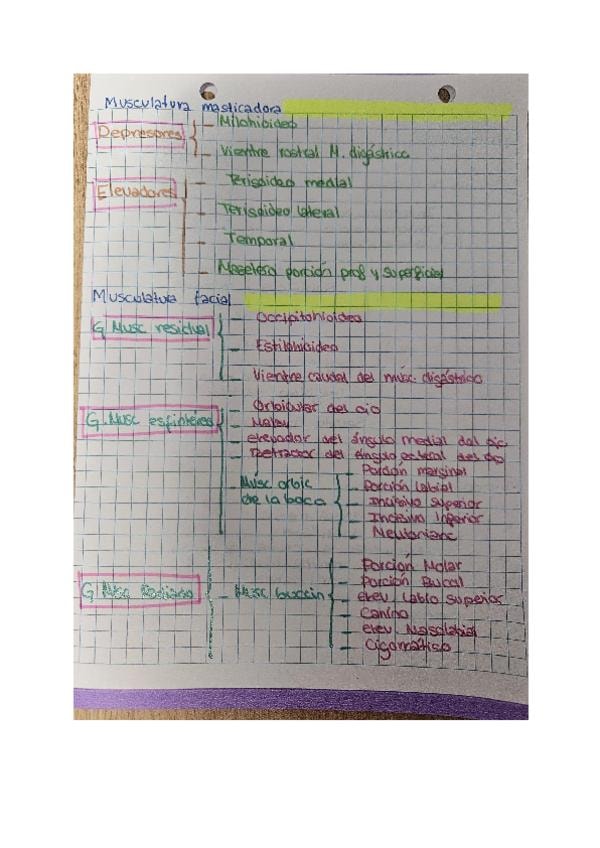 Musculatura masticadora
Depresores
Milohioideo
Vientre rostral M. digástrico
Elevadores
Terigoideo medial
Terigoideo lateral
Temporal
Masetero porción prof y superficial
Musculatura facial
G Musc residual
Occipitohioideo
Estilohioideo
Vientre caudal del músc. digástrico
G. Musc esfintéres
Orbicular del ojo
Malar
elevador del ángulo medial del ojo
Retractor del ángulo lateral del ojo
Músc orbic
de la boca
Porción marginal
Porción labial
Incisivo superior
Incisivo Inferior
Mentoniano
G Musc Radiado
Musc buccin
Porción Molar
Porción Bucal
elev labio superior
Canino
elev. Nasolabial
Cigomático